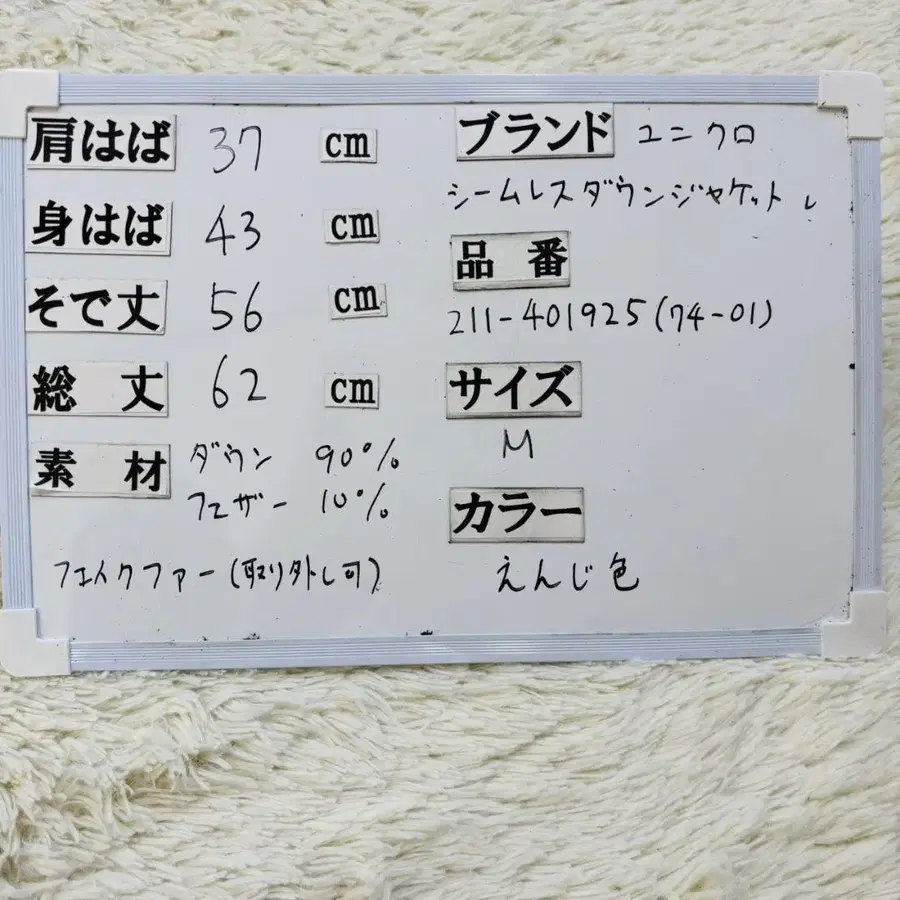 肩はば 37 cm
身はば 43 cm
そで丈 56 cm
総丈 62 cm
素材 ダウン 90%
フェザー 10%
フェイクファー(取り外し可)
ブランド ユニクロ
シームレスダウンジャケット
品番
211-401925(74-01)
サイズ
M
カラー
えんじ色